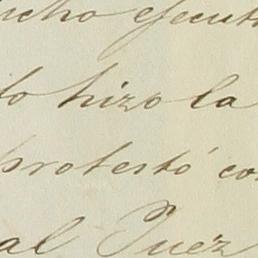 icho ejecut
lo hizo la
protestó co
al Juez